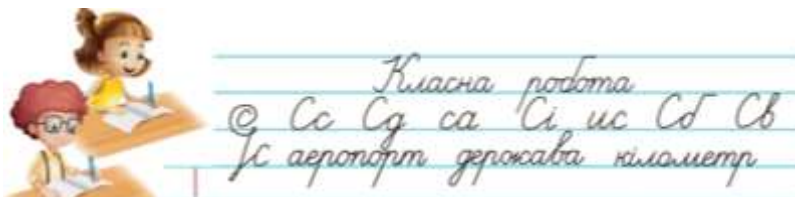 Класна робота
С Сс Сд са Сі ис Сб Св
С аеропорт держава кілометр